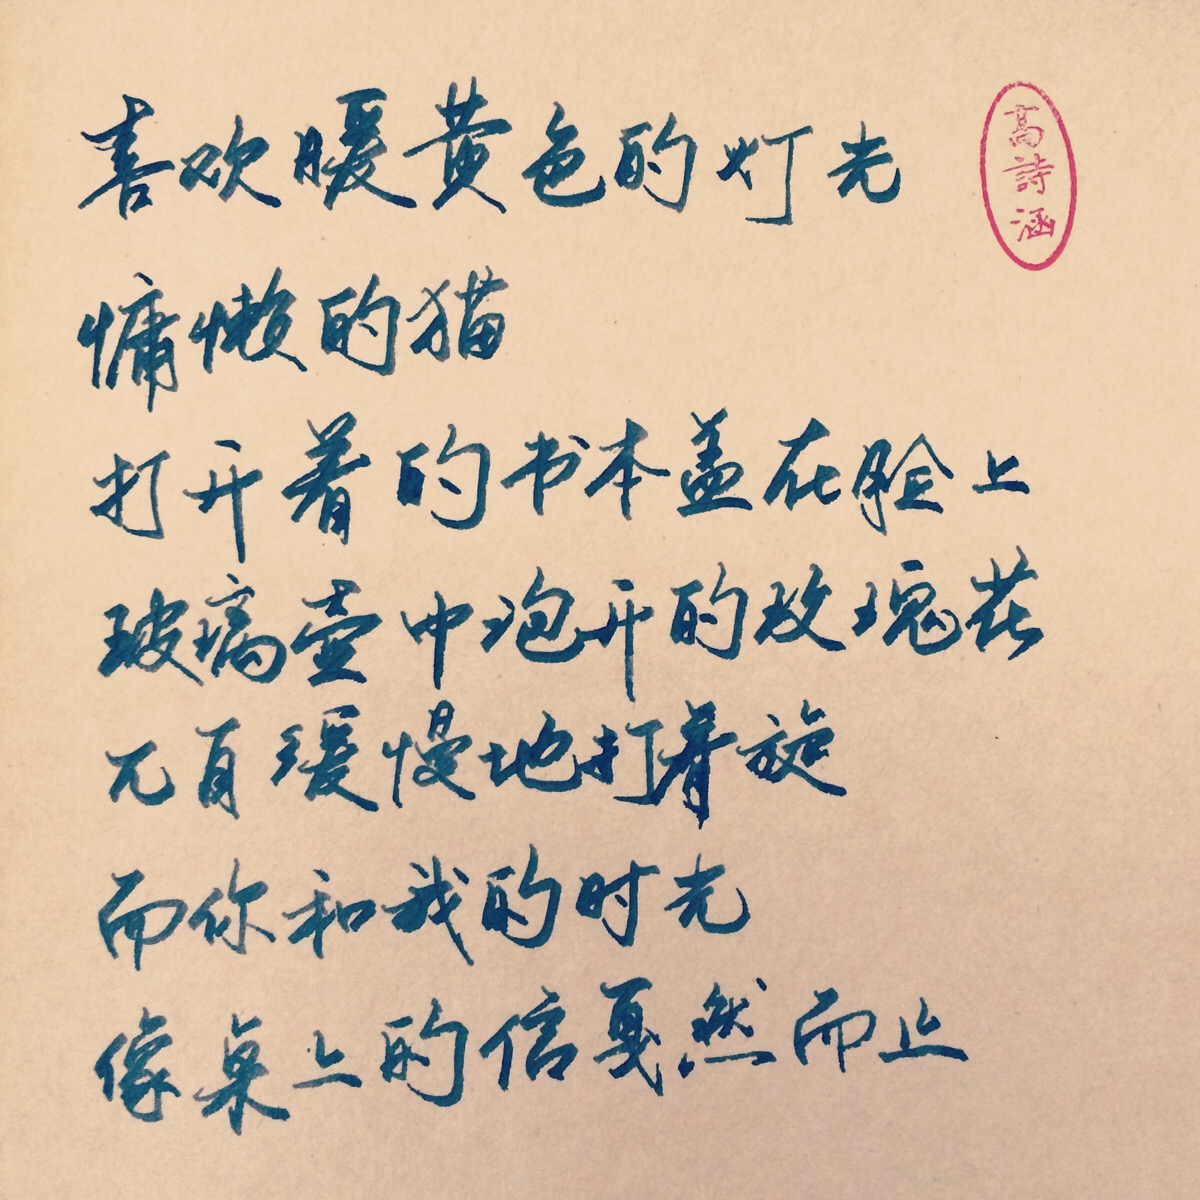 喜欢暖黄色的灯光
慵懒的猫
打开着的书本盖在脸上
玻璃壶中泡开的玫瑰花
兀自缓慢地打着旋
而你和我的时光
像桌上的信戛然而止
高詩涵